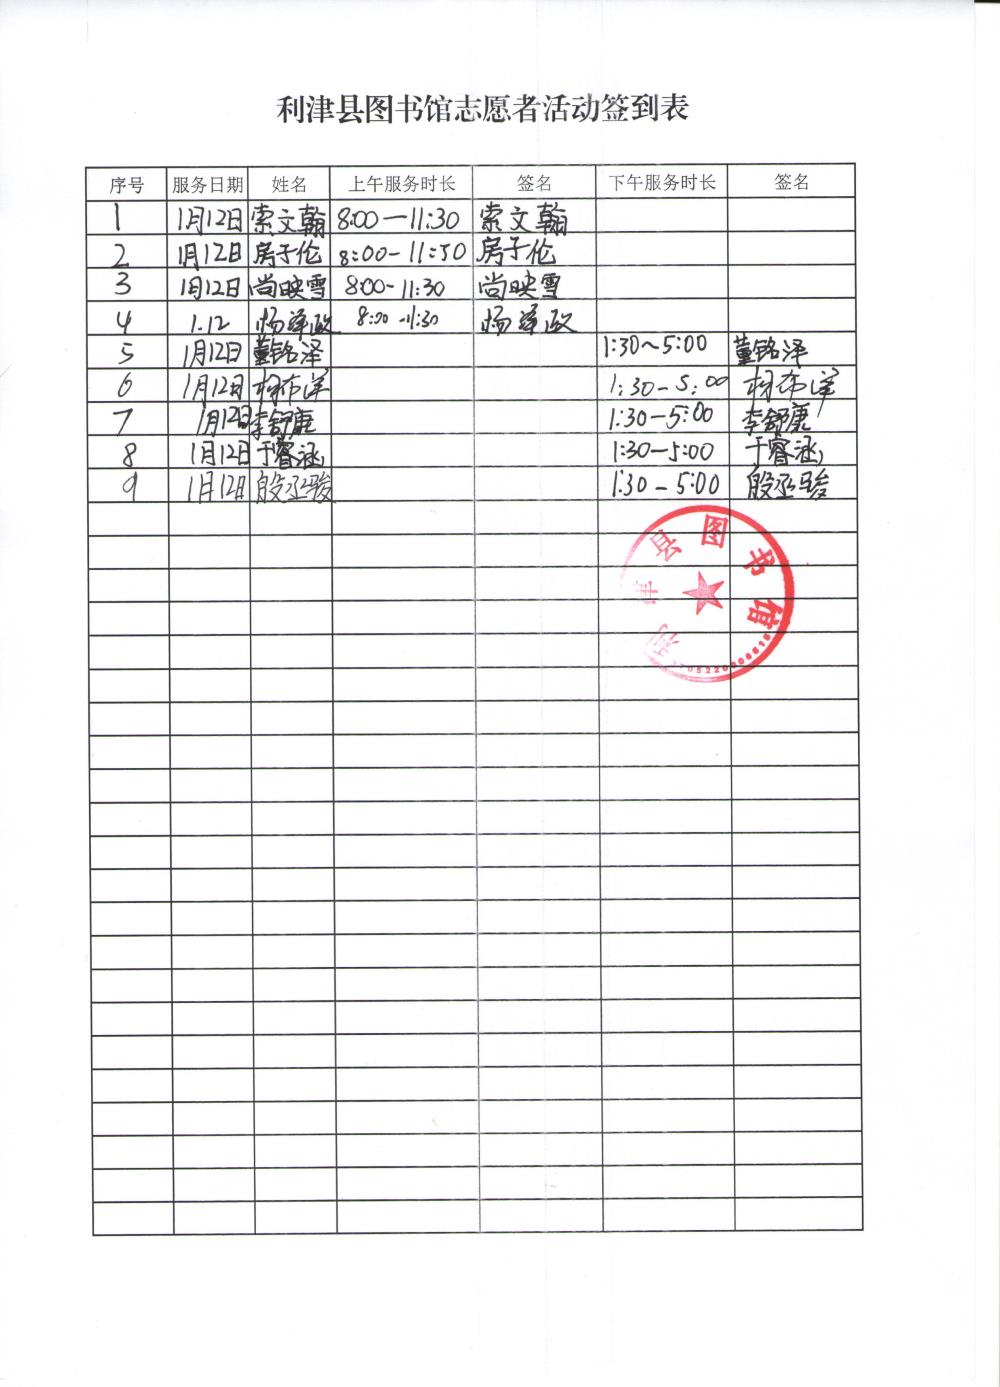 利津县图书馆志愿者活动签到表
序号 服务日期 姓名 上午服务时长 签名 下午服务时长 签名
1 1月12日 索文翰 8:00—11:30 索文翰
2 1月12日 房子伦 8:00-11:30 房子伦
3 1月12日 尚映雪 8:00-11:30 尚映雪
4 1.12 杨泽政 8:00-11:30 杨泽政
5 1月12日 董铭泽 1:30~5:00 董铭泽
6 1月12日 1:30-5:00
7 1月12日 李舒康 1:30-5:00 李舒康
8 1月12日 于睿涵 1:30-5:00 于睿涵
9 1月12日 殷丞骏 1:30-5:00 殷丞骏
利津县图书馆